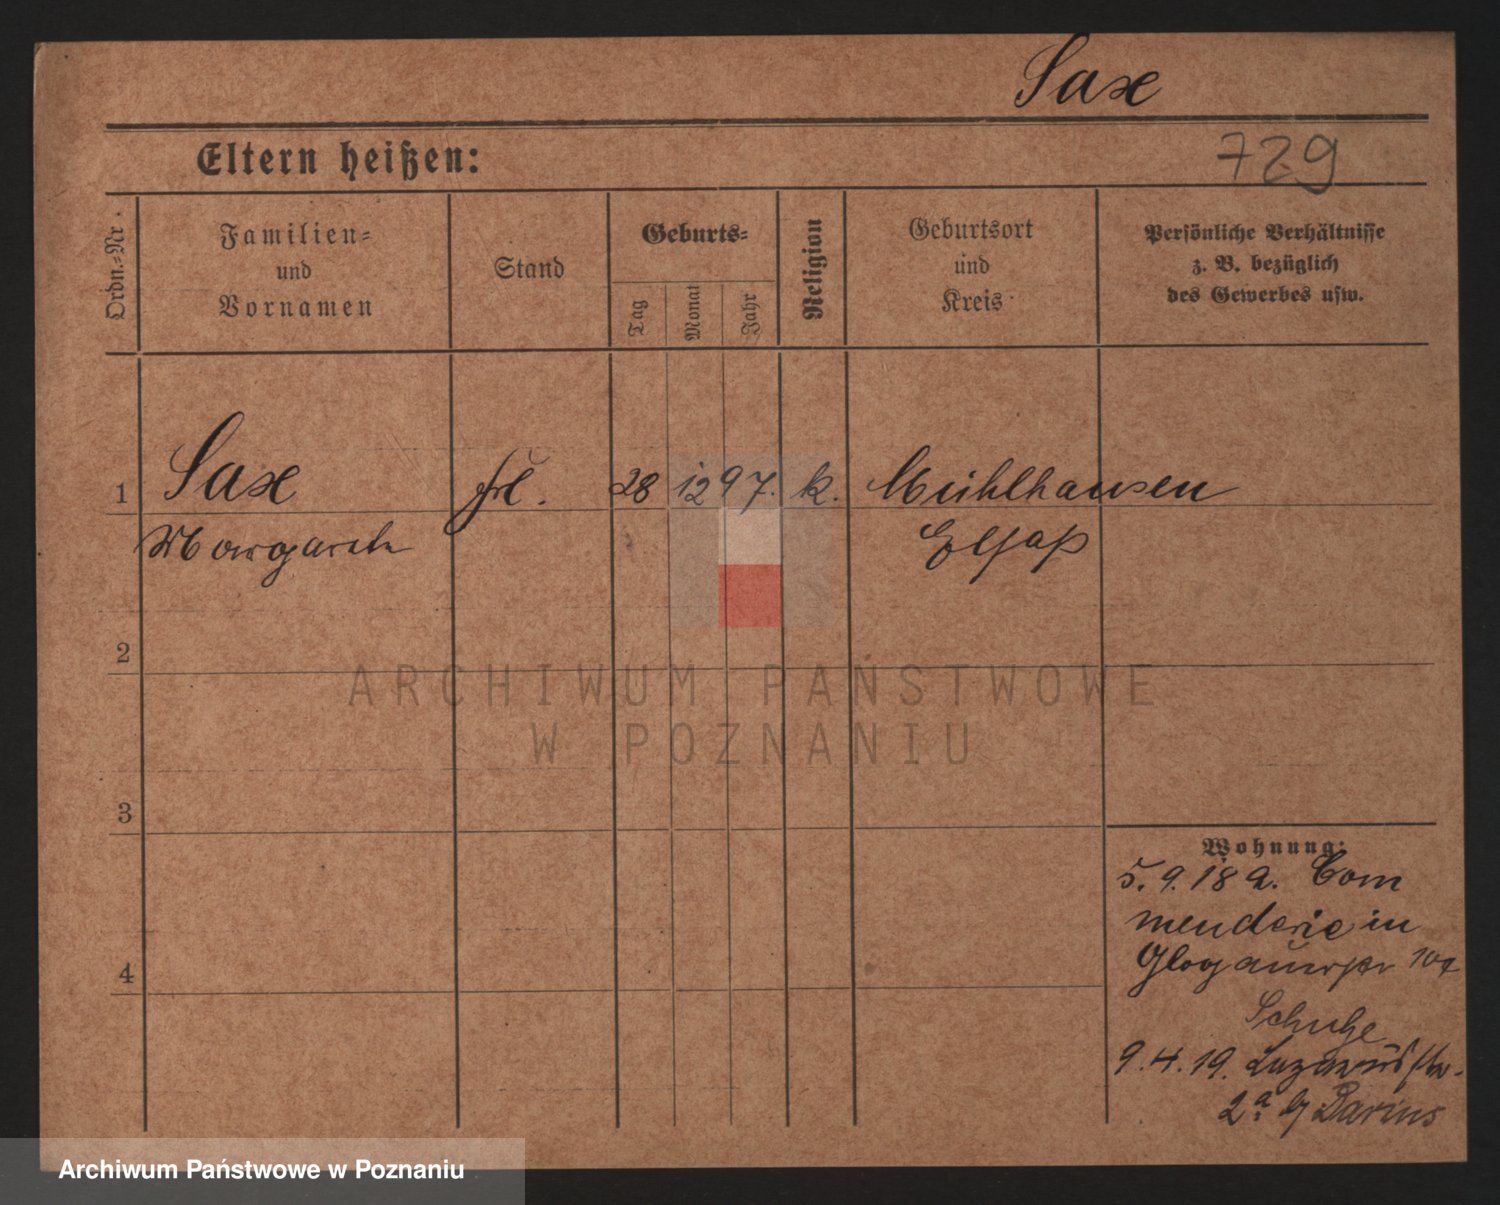 Saxe
Eltern heißen:
729
Ordn.-Nr.
Familien-
und
Vornamen
Stand
Geburts-
Tag
Monat
Jahr
Religion
Geburtsort
und
Kreis
Persönliche Verhältnisse
z. B. bezüglich
des Gewerbes usw.
1
Saxe
frl.
28
12
97.
k.
Mühlhausen
Margarete
Elsaß
2
3
4
Wohnung:
5. 9. 18 a. Com
menderie in
Glogauerstr 107
Schulze
9. 4. 19. Lazarusstr.
2a b/ Darius
ARCHIWUM PAŃSTWOWE
W POZNANIU
Archiwum Państwowe w Poznaniu